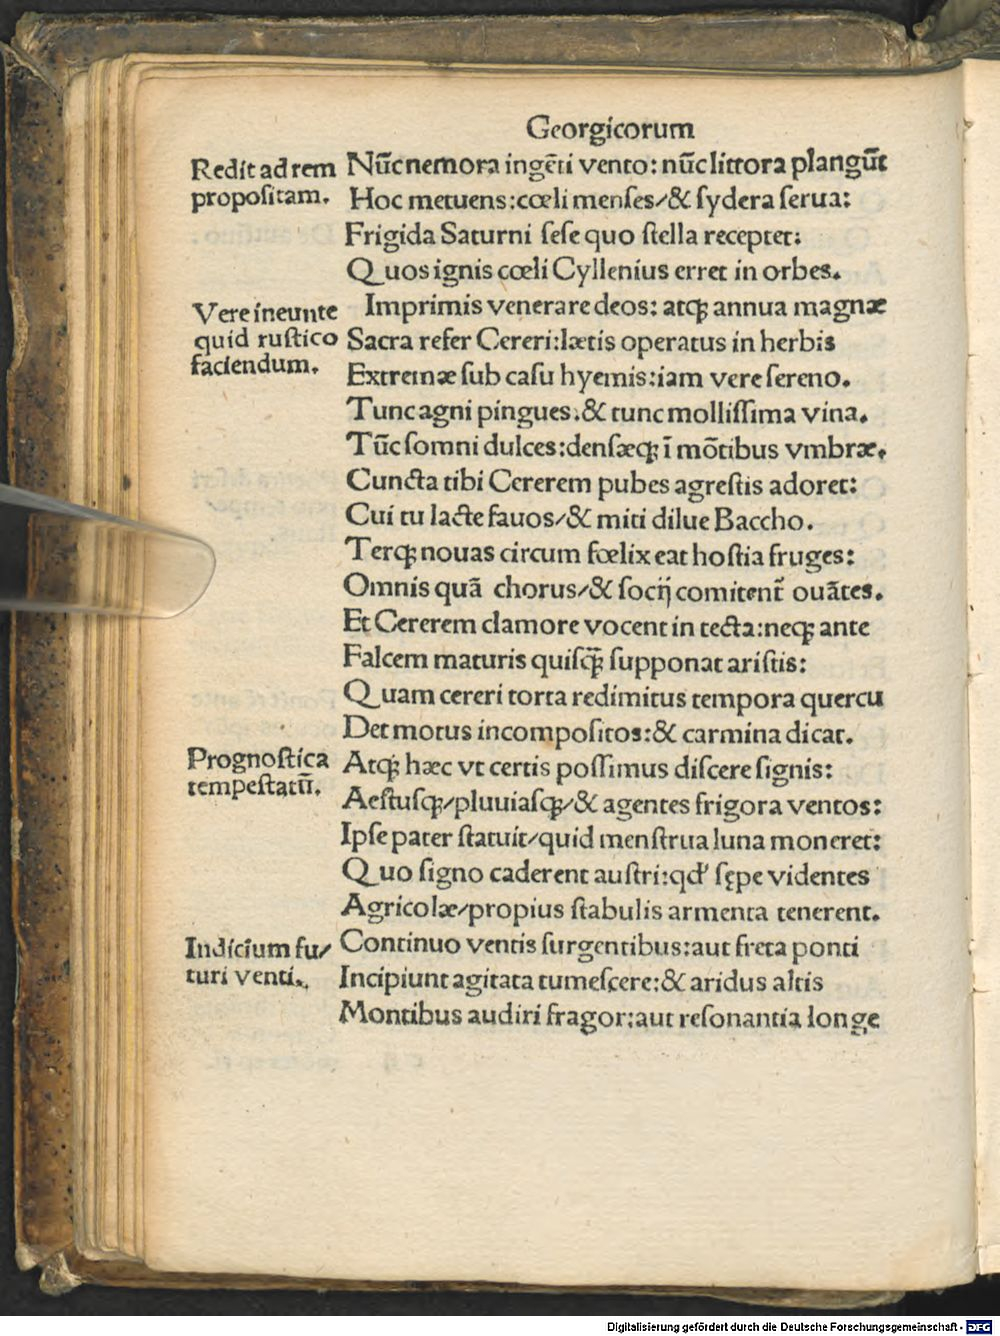 Georgicorum
Redit ad rem
propoſitam.
Nūc nemora ingēti vento: nūc littora plangūt
Hoc metuens: cœli menſes/& ſydera ſerua:
Frigida Saturni ſeſe quo ſtella receptet:
Quos ignis cœli Cyllenius erret in orbes.
Vere ineunte
quid ruſtico
faciendum.
Imprimis venerare deos: atqꝫ annua magnæ
Sacra refer Cereri: lætis operatus in herbis
Extremæ ſub caſu hyemis: iam vere ſereno.
Tunc agni pingues: & tunc molliſſima vina.
Tūc ſomni dulces: denſæqꝫ ī mōtibus vmbræ.
Cuncta tibi Cererem pubes agreſtis adoret:
Cui tu lacte fauos/& miti dilue Baccho.
Terqꝫ nouas circum fœlix eat hoſtia fruges:
Omnis quā chorus/& ſocij comitent᷑ ouātes.
Et Cererem clamore vocent in tecta: neqꝫ ante
Falcem maturis quiſqꝫ̄ ſupponat ariſtis:
Quam cereri torta redimitus tempora quercu
Det motus incompoſitos: & carmina dicat.
Prognoſtica
tempeſtatū.
Atqꝫ hæc vt certis poſſimus diſcere ſignis:
Aeſtuſqꝫ/pluuiaſqꝫ/& agentes frigora ventos:
Ipſe pater ſtatuit/quid menſtrua luna moneret:
Quo ſigno caderent auſtri: qd' ſępe videntes
Agricolæ/propius ſtabulis armenta tenerent.
Indicium fu/
turi venti.
Continuo ventis ſurgentibus: aut freta ponti
Incipiunt agitata tumeſcere: & aridus altis
Montibus audiri fragor: aut reſonantia longe
Digitalisierung gefördert durch die Deutsche Forschungsgemeinschaft - DFG